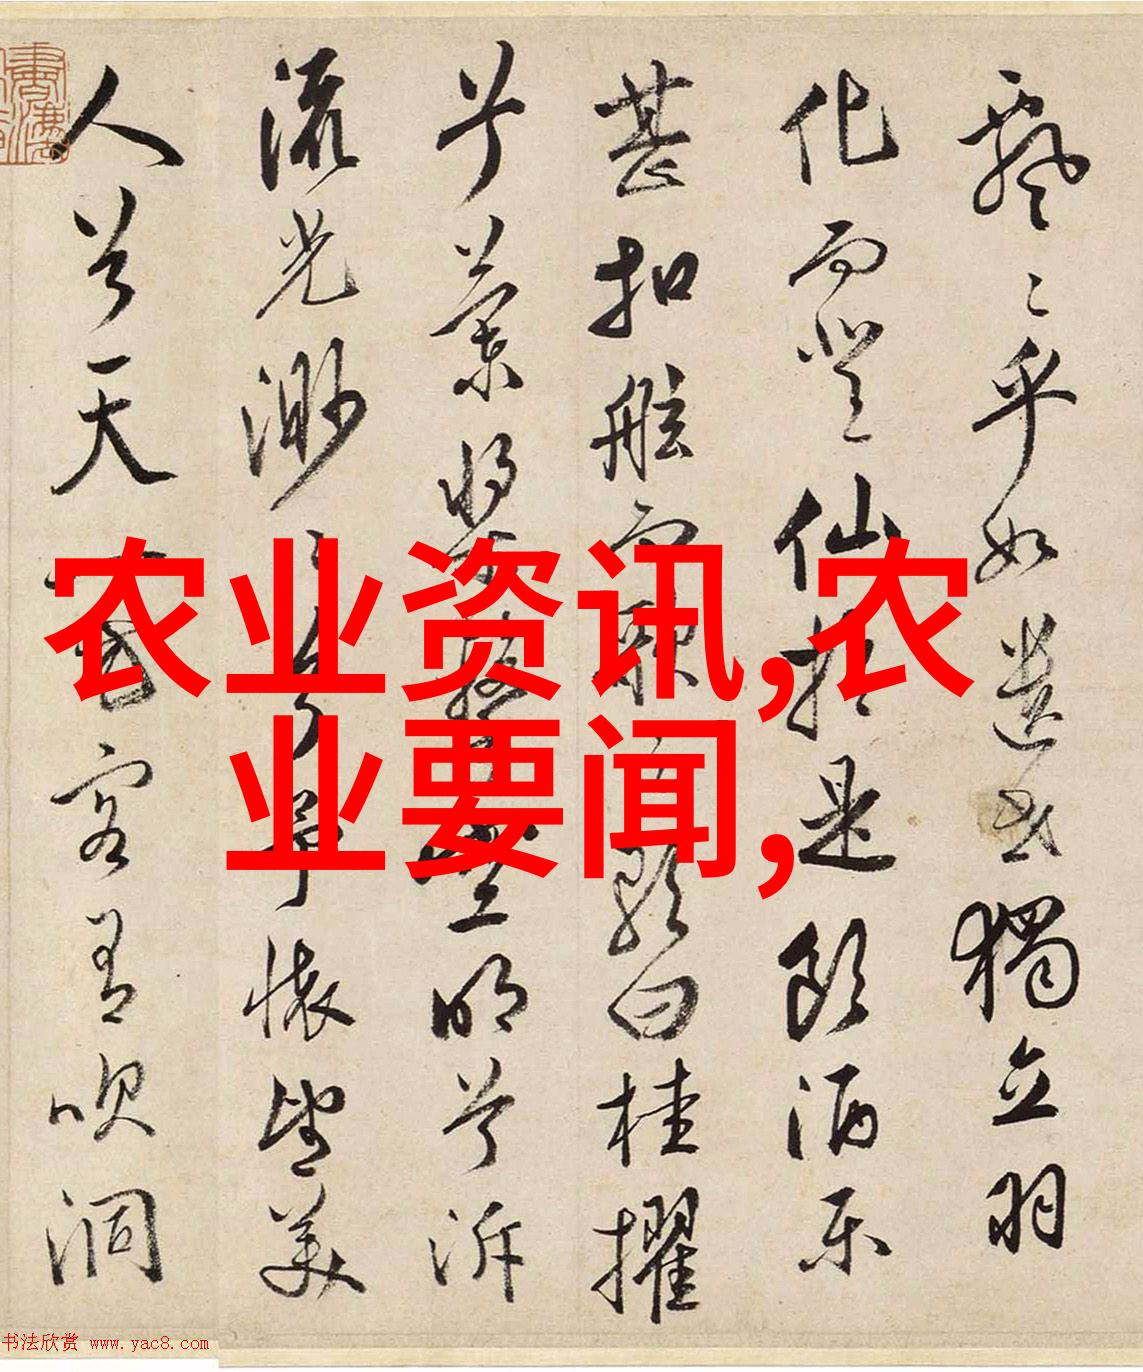 飄飄乎如遺世獨立羽
化而登仙於是飲酒樂
甚扣舷而歌之歌曰桂擢
兮蘭槳擊空明兮泝
流光渺渺兮予懷望美
人兮天一方客有吹洞
农业资讯,农
业要闻,
书法欣赏 www.yac8.com